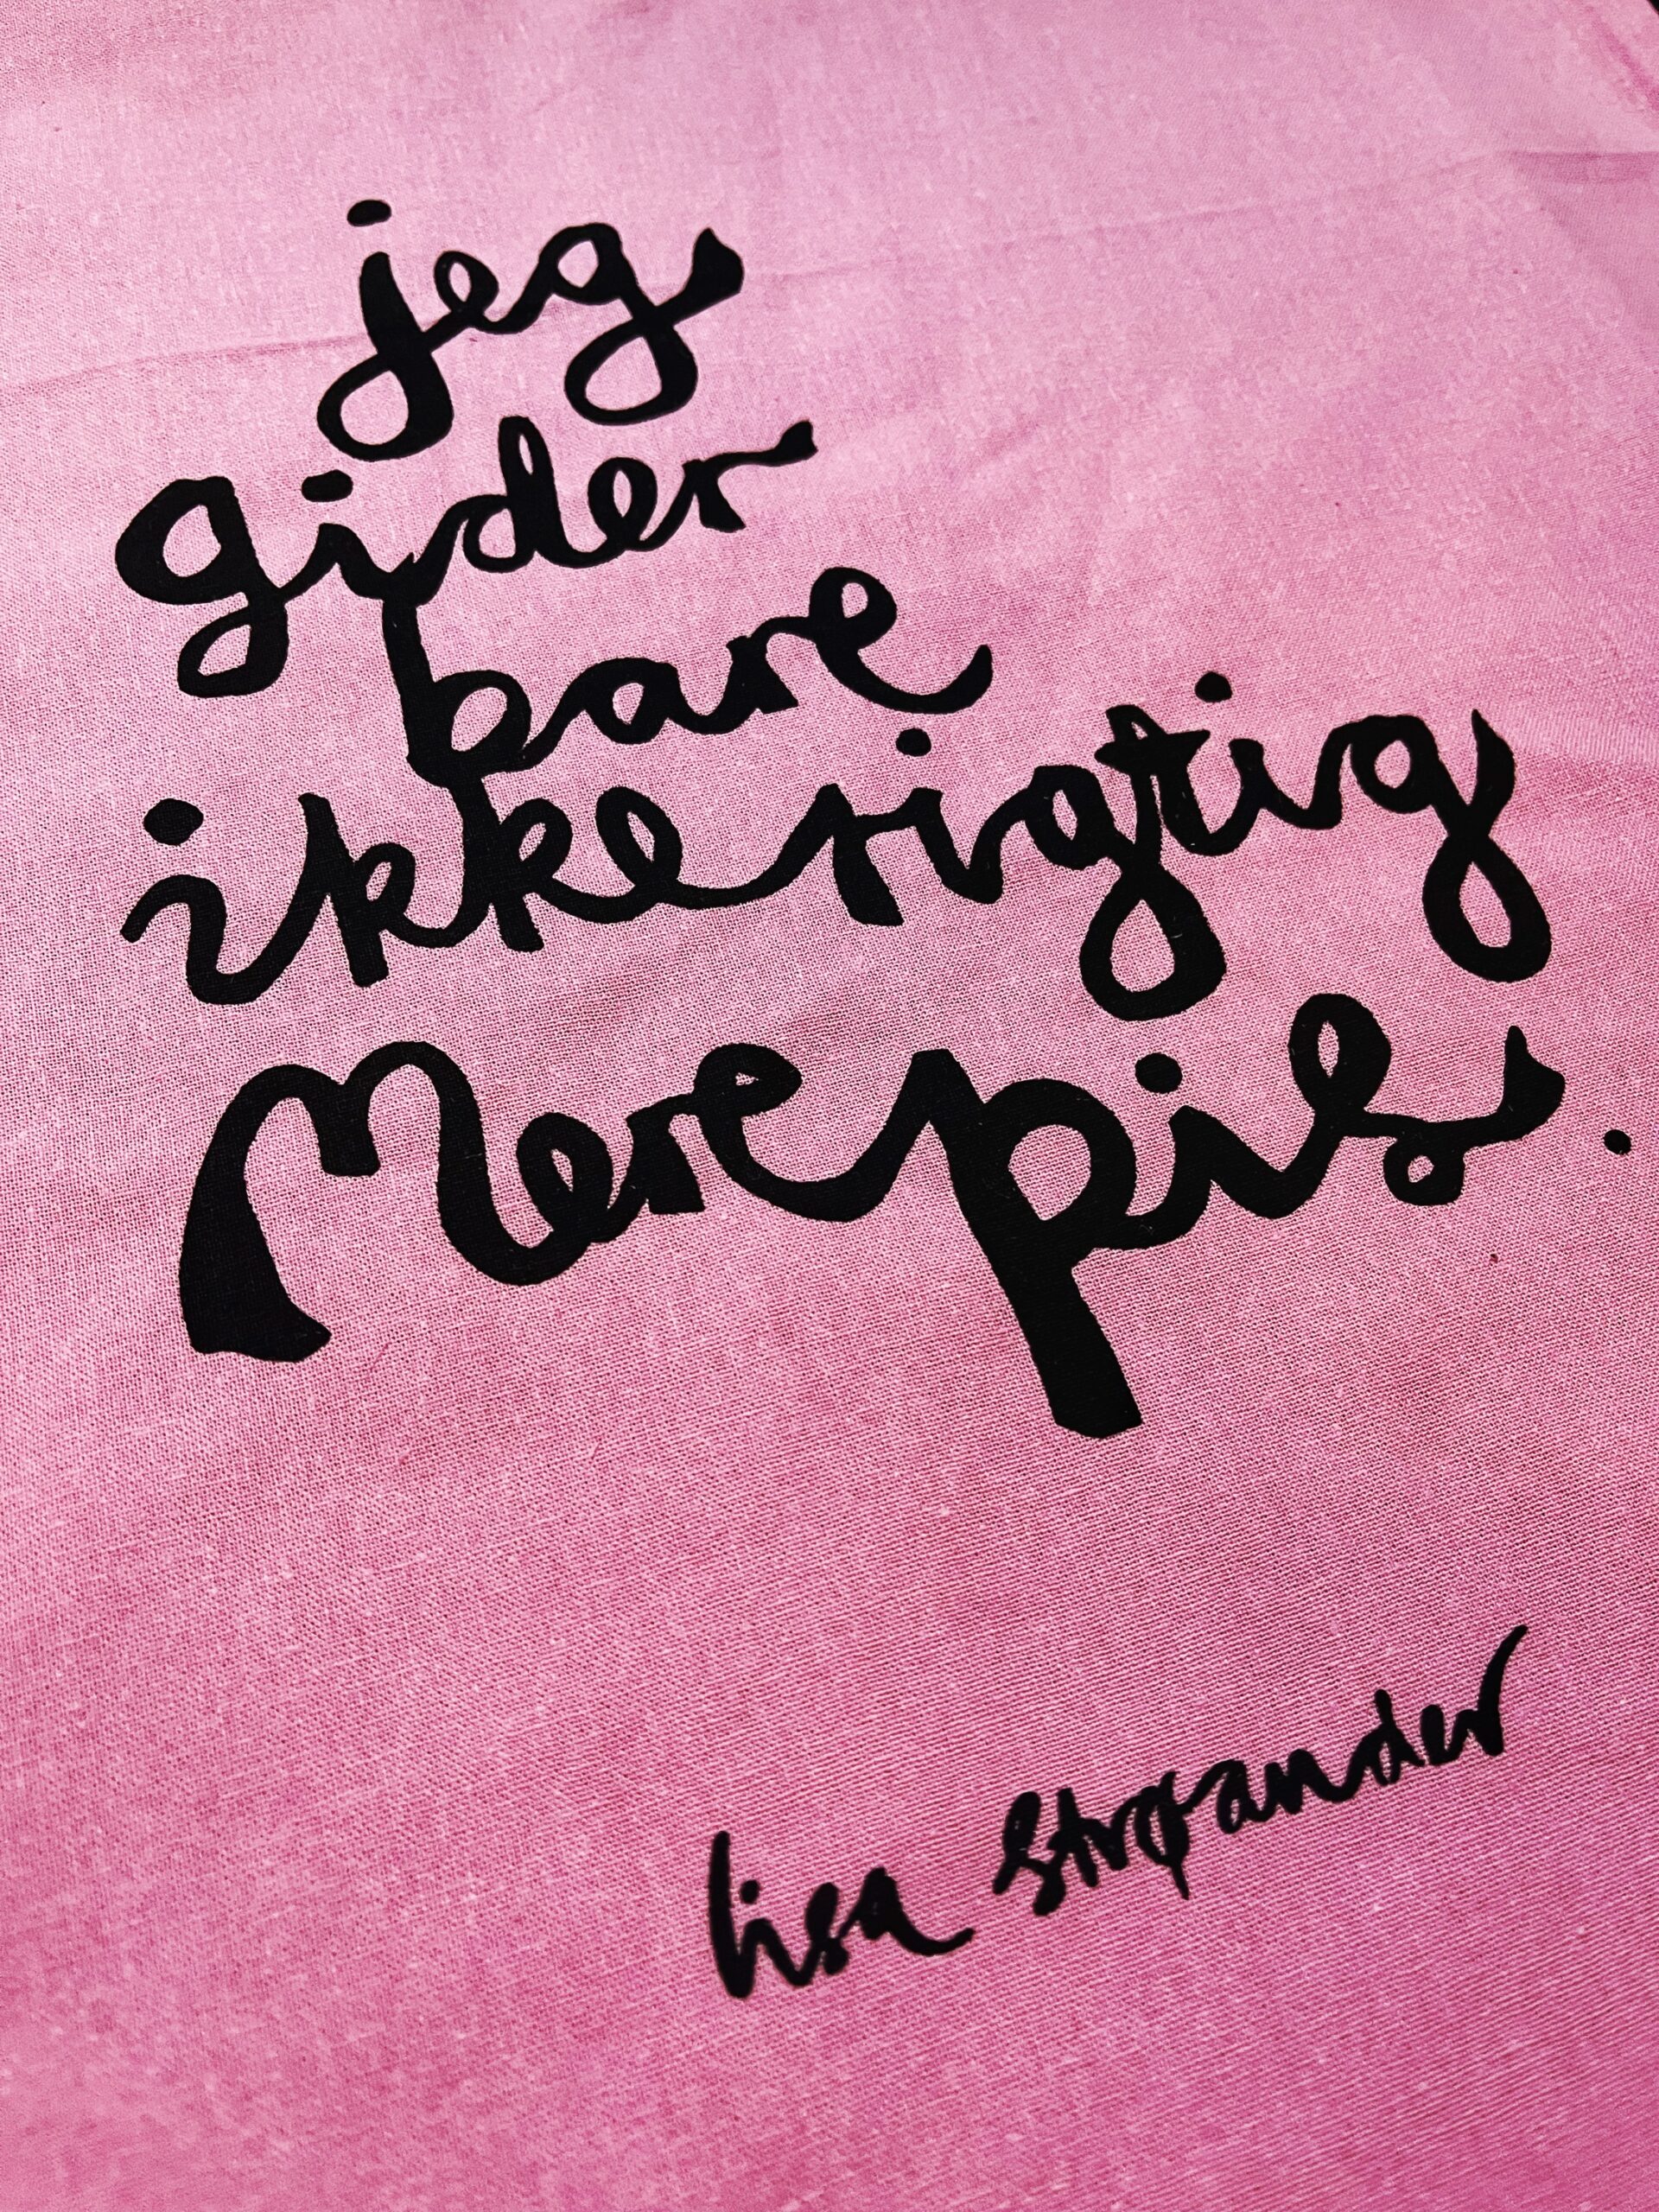 jeg
gider
bare
ikke rigtig
Mere pis.
lisa Strøander